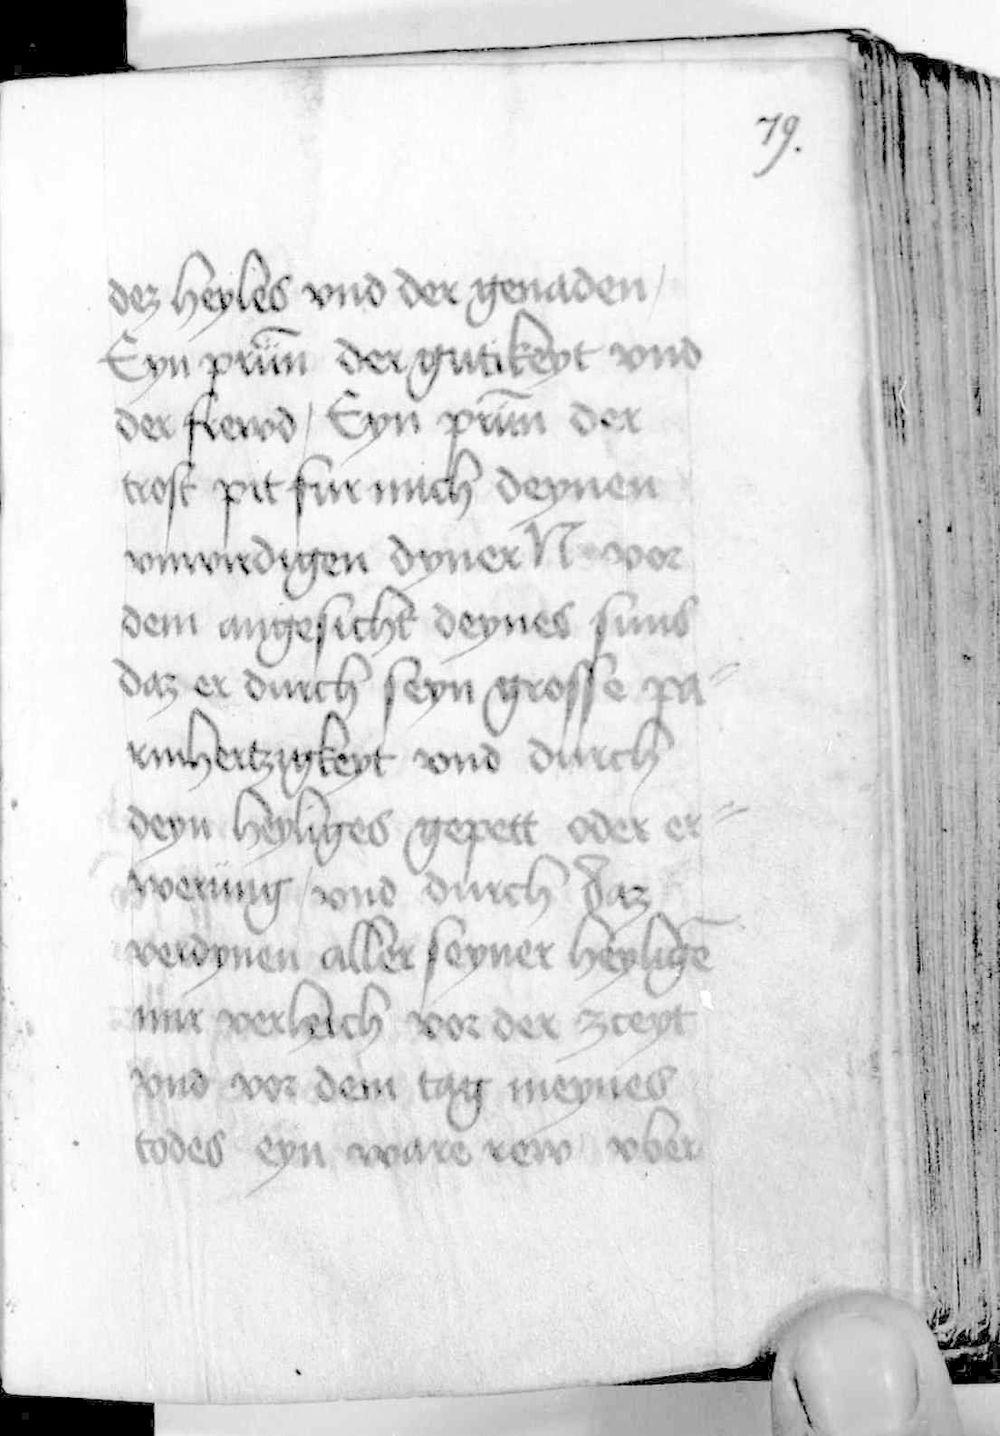 79.
dez heyles vnd der genaden /
Eyn prün̄ der gutikeyt vnd
der frewd / Eyn prün̄ der
trost pit fur mich deynen
vnwirdigen dyner N vor
dem angesicht deynes suns
daz er durch seyn grosse pa=
rmhertzigkeyt vnd durch
deyn heyliges gepett oder er=
werüng / vnd durch daz
verdynen aller seyner heyligē
mir verleich vor der zceyt
vnd vor dem tag meynes
todes eyn ware rew vber